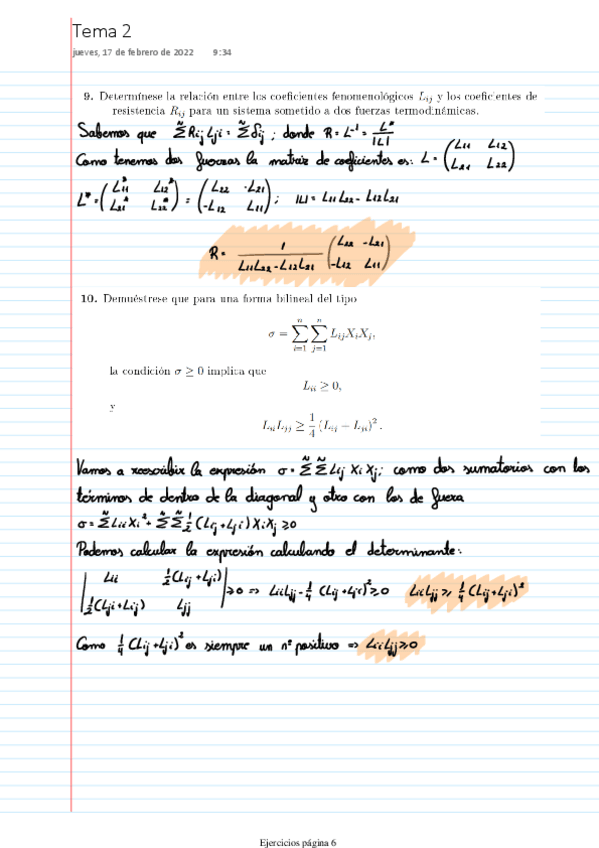 Tema 2
jueves, 17 de febrero de 2022 9:34
9. Determínese la relación entre los coeficientes fenomenológicos L_{ij} y los coeficientes de
resistencia R_{ij} para un sistema sometido a dos fuerzas termodinámicas.
Sabemos que Σ^n R_{ij} L_{ji} = Σ^n δ_{ij} ; donde R = L^{-1} = L*/|L|
Como tenemos dos fuerzas la matriz de coeficientes es: L = (L_{11} L_{12} / L_{21} L_{22})
L* = (L_{11}* L_{12}* / L_{21}* L_{22}*) = (L_{22} -L_{21} / -L_{12} L_{11}) ; |L| = L_{11}L_{22} - L_{12}L_{21}
R = 1/(L_{11}L_{22} - L_{12}L_{21}) (L_{22} -L_{21} / -L_{12} L_{11})
10. Demuéstrese que para una forma bilineal del tipo
σ = Σ_{i=1}^{n} Σ_{j=1}^{n} L_{ij}X_iX_j,
la condición σ ≥ 0 implica que
L_{ii} ≥ 0,
y
L_{ii}L_{jj} ≥ 1/4 (L_{ij} − L_{ji})^2 .
Vamos a reescribir la expresión σ = Σ^n Σ^n L_{ij} X_i X_j ; como dos sumatorios con los
términos de dentro de la diagonal y otro con los de fuera
σ = Σ^n L_{ii} X_i^2 + Σ^n Σ^n 1/2 (L_{ij} + L_{ji}) X_i X_j ≥ 0
Podemos calcular la expresión calculando el determinante:
|L_{ii} 1/2(L_{ij} + L_{ji}) / 1/2(L_{ji} + L_{ij}) L_{jj}| ≥ 0 => L_{ii}L_{jj} - 1/4 (L_{ij} + L_{ji})^2 ≥ 0 L_{ii}L_{jj} ≥ 1/4 (L_{ij} + L_{ji})^2
Como 1/4 (L_{ij} + L_{ji})^2 es siempre un nº positivo => L_{ii}L_{jj} ≥ 0
Ejercicios página 6